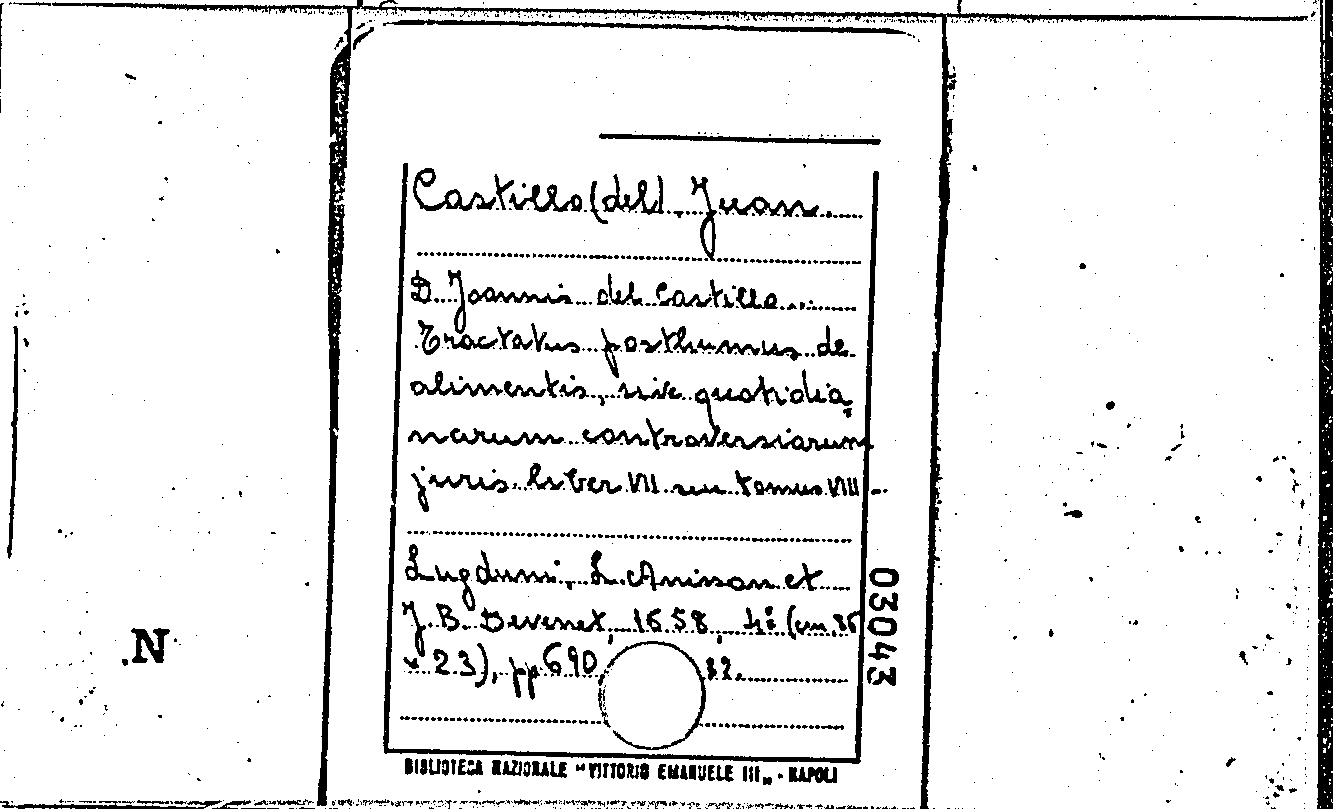 Castillo (del), Juan.
D. Joannis del Castillo...
Tractatus posthumus de
alimentis, sive quotidia-
narum controversiarum
juris liber VII seu tomus VIII.
Lugduni, L. Anisson et
J. B. Devenet, 1658, 4º (cm. 36
x 23), pp 690, 32.
03043
N
BIBLIOTECA NAZIONALE "VITTORIO EMANUELE III„ - NAPOLI